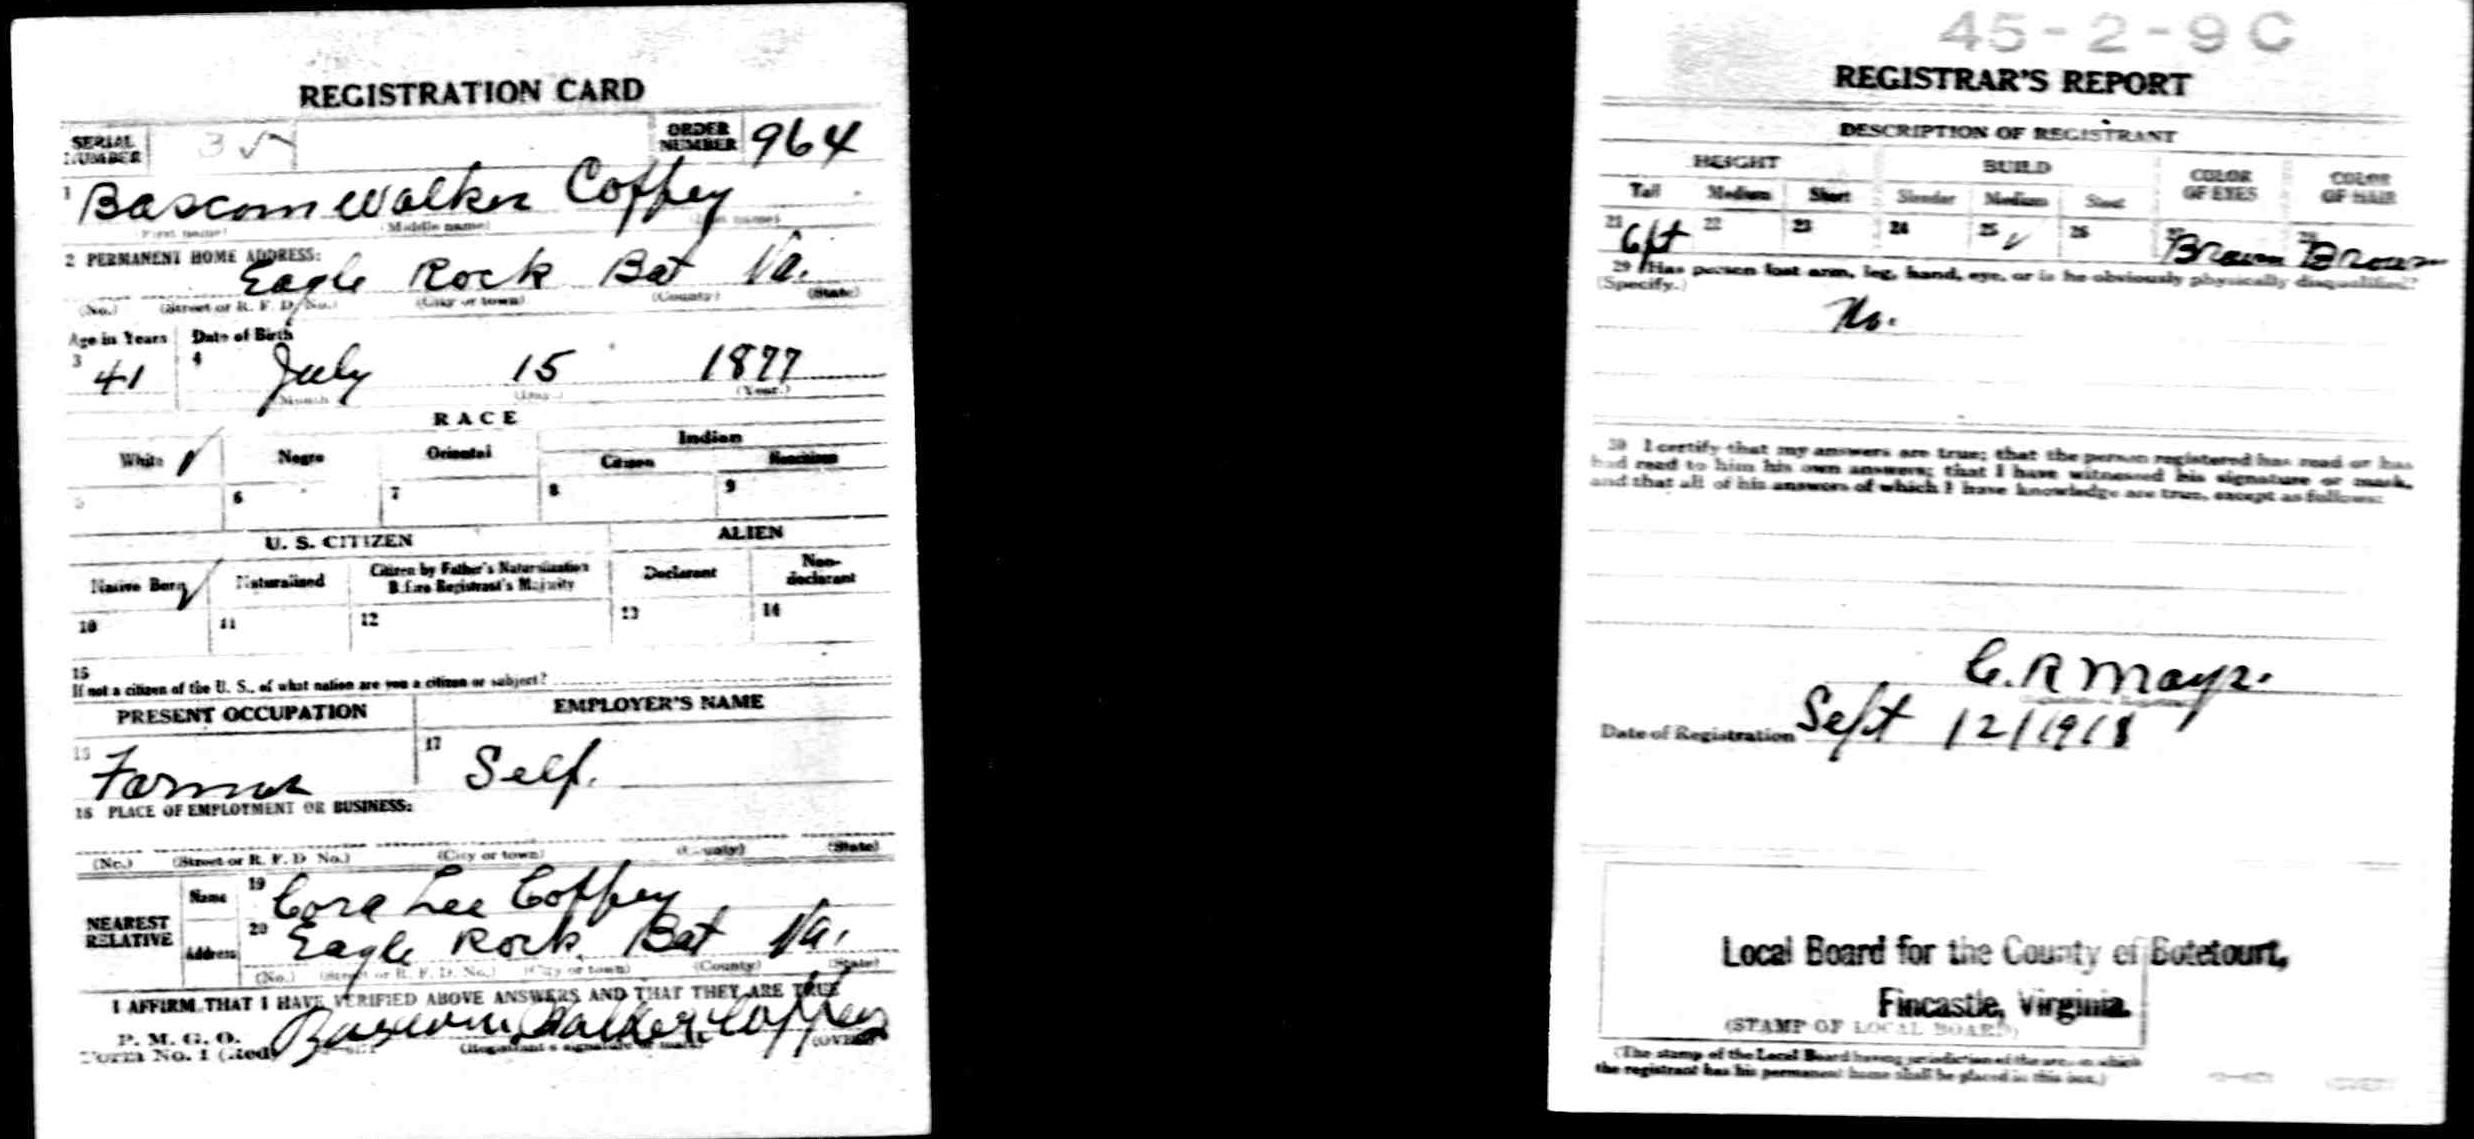 REGISTRATION CARD
SERIAL NUMBER 35 ORDER NUMBER 964
1 Bascom Walker Coffey
(First name) (Middle name) (Last name)
2 PERMANENT HOME ADDRESS:
Eagle Rock Bot Va.
(No.) (Street or R. F. D. No.) (City or town) (County) (State)
Age in Years Date of Birth
3 41 4 July 15 1877
(Month) (Day.) (Year.)
RACE
White ✓ Negro Oriental Indian
Citizen Noncitizen
5 6 7 8 9
U. S. CITIZEN ALIEN
Native Born ✓ Naturalized Citizen by Father's Naturalization Before Registrant's Majority Declarant Non-declarant
10 11 12 13 14
15
If not a citizen of the U. S., of what nation are you a citizen or subject?
PRESENT OCCUPATION EMPLOYER'S NAME
Farmer 17 Self.
18 PLACE OF EMPLOYMENT OR BUSINESS:
(No.) (Street or R. F. D. No.) (City or town) (County) (State)
NEAREST RELATIVE Name 19 Cora Lee Coffey
Address 20 Eagle Rock, Bot Va.
(No.) (Street or R. F. D. No.) (City or town) (County) (State)
I AFFIRM THAT I HAVE VERIFIED ABOVE ANSWERS AND THAT THEY ARE TRUE
P. M. G. O.
Form No. 1 (Red) Bascom Walker Coffey
(Registrant's signature or mark) (OVER)
45-2-9 C
REGISTRAR'S REPORT
DESCRIPTION OF REGISTRANT
HEIGHT BUILD COLOR OF EYES COLOR OF HAIR
Tall Medium Short Slender Medium Stout
21 6ft 22 23 24 25 ✓ 26 27 Brown 28 Brown
29 Has person lost arm, leg, hand, eye, or is he obviously physically disqualified?
(Specify.)
No.
30 I certify that my answers are true; that the person registered has read or has
had read to him his own answers; that I have witnessed his signature or mark,
and that all of his answers of which I have knowledge are true, except as follows:
C. R. Mayo.
Date of Registration Sept 12/1918
Local Board for the County of Botetourt,
Fincastle, Virginia.
(STAMP OF LOCAL BOARD)
(The stamp of the Local Board having jurisdiction of the area in which
the registrant has his permanent home shall be placed in this box.)
(OVER)